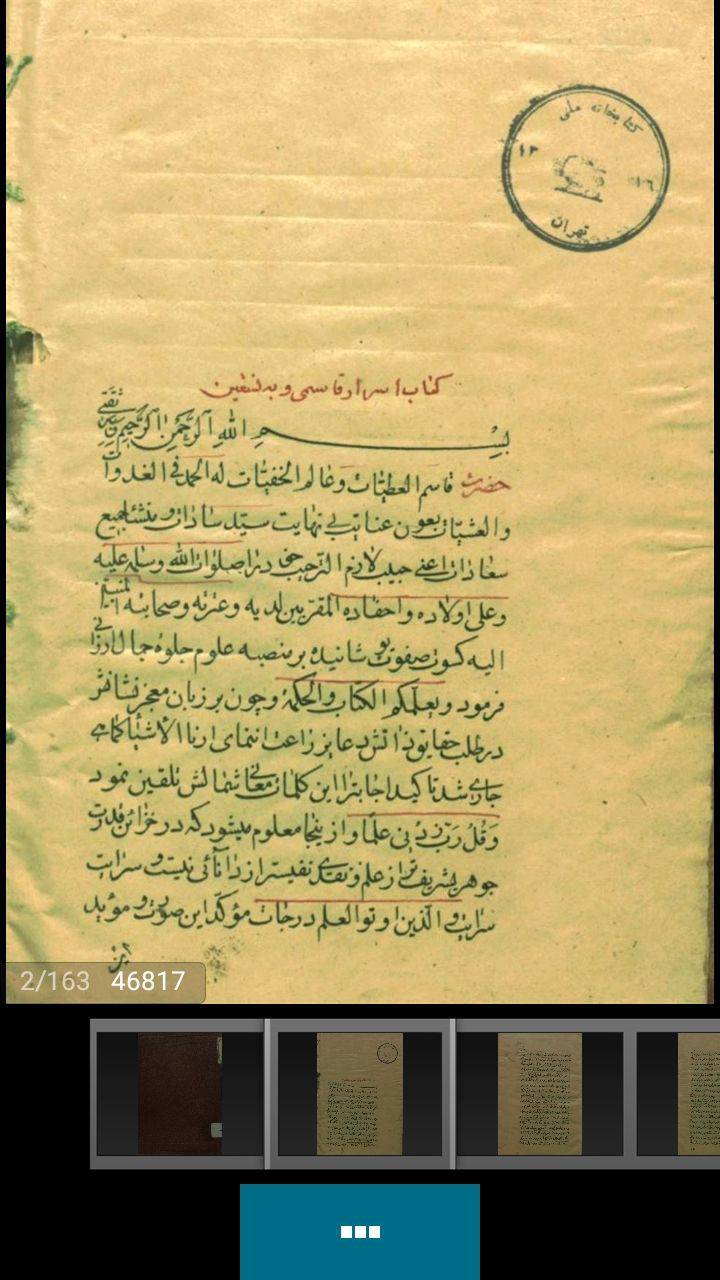 کتابخانه ملی
۱۳ ۱۶
تهران
کتاب اسرار قاسمی و به نستعین
بسم الله الرحمن الرحیم و به ثقتی
حضرت قاسم العطیات و عالم الخفیات له الحمد فی الغدوات
والعشیات بعون عنایت بی نهایت سید سادات و منشأ جمیع
سعادات اعنی حبیب لازم الترحیب حق در اصلوات الله وسلامه علیه
وعلی اولاده و احفاده المقربین لدیه و عترته و صحابته المنتسبین
الیه کسوت صفوت پوشانیده بر منصه علوم جلوه جمال ارزانی
فرمود و یعلمکم الکتاب والحکمة و چون بر زبان معجز نشانش
در طلب حقایق ذاتش دعا بزراعت انتمای ارنا الاشیاء کماهی
جاری شد تاکید اجابت را این کلمات معانی شمالش تلقین نمود
وقل رب زدنی علما و از ینجا معلوم میشود که در خزائن قدرت
جوهر شریفتر از علم و نقدی نفیستر از دانائی نیست و سرایت
سرایت والذین اوتوا العلم درجات مؤکد این صورت و مؤید
این
2/163 46817